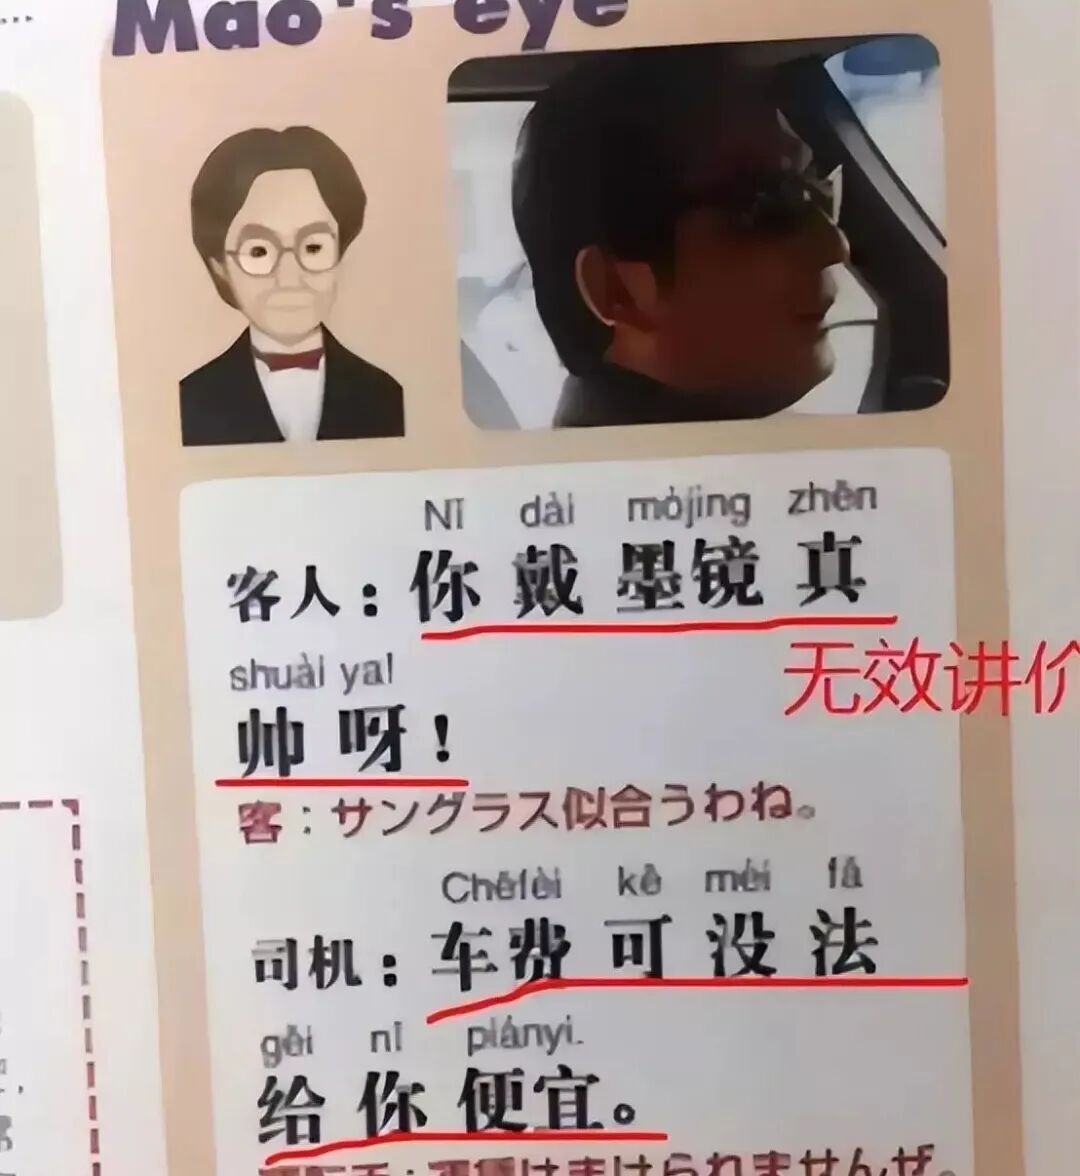 Mao's eye
Nǐ dài mòjìng zhēn
客人：你戴墨镜真
shuài ya!
帅呀！
无效讲价
客：サングラス似合うわね。
Chēfèi kě méi fǎ
司机：车费可没法
gěi nǐ piányi.
给你便宜。